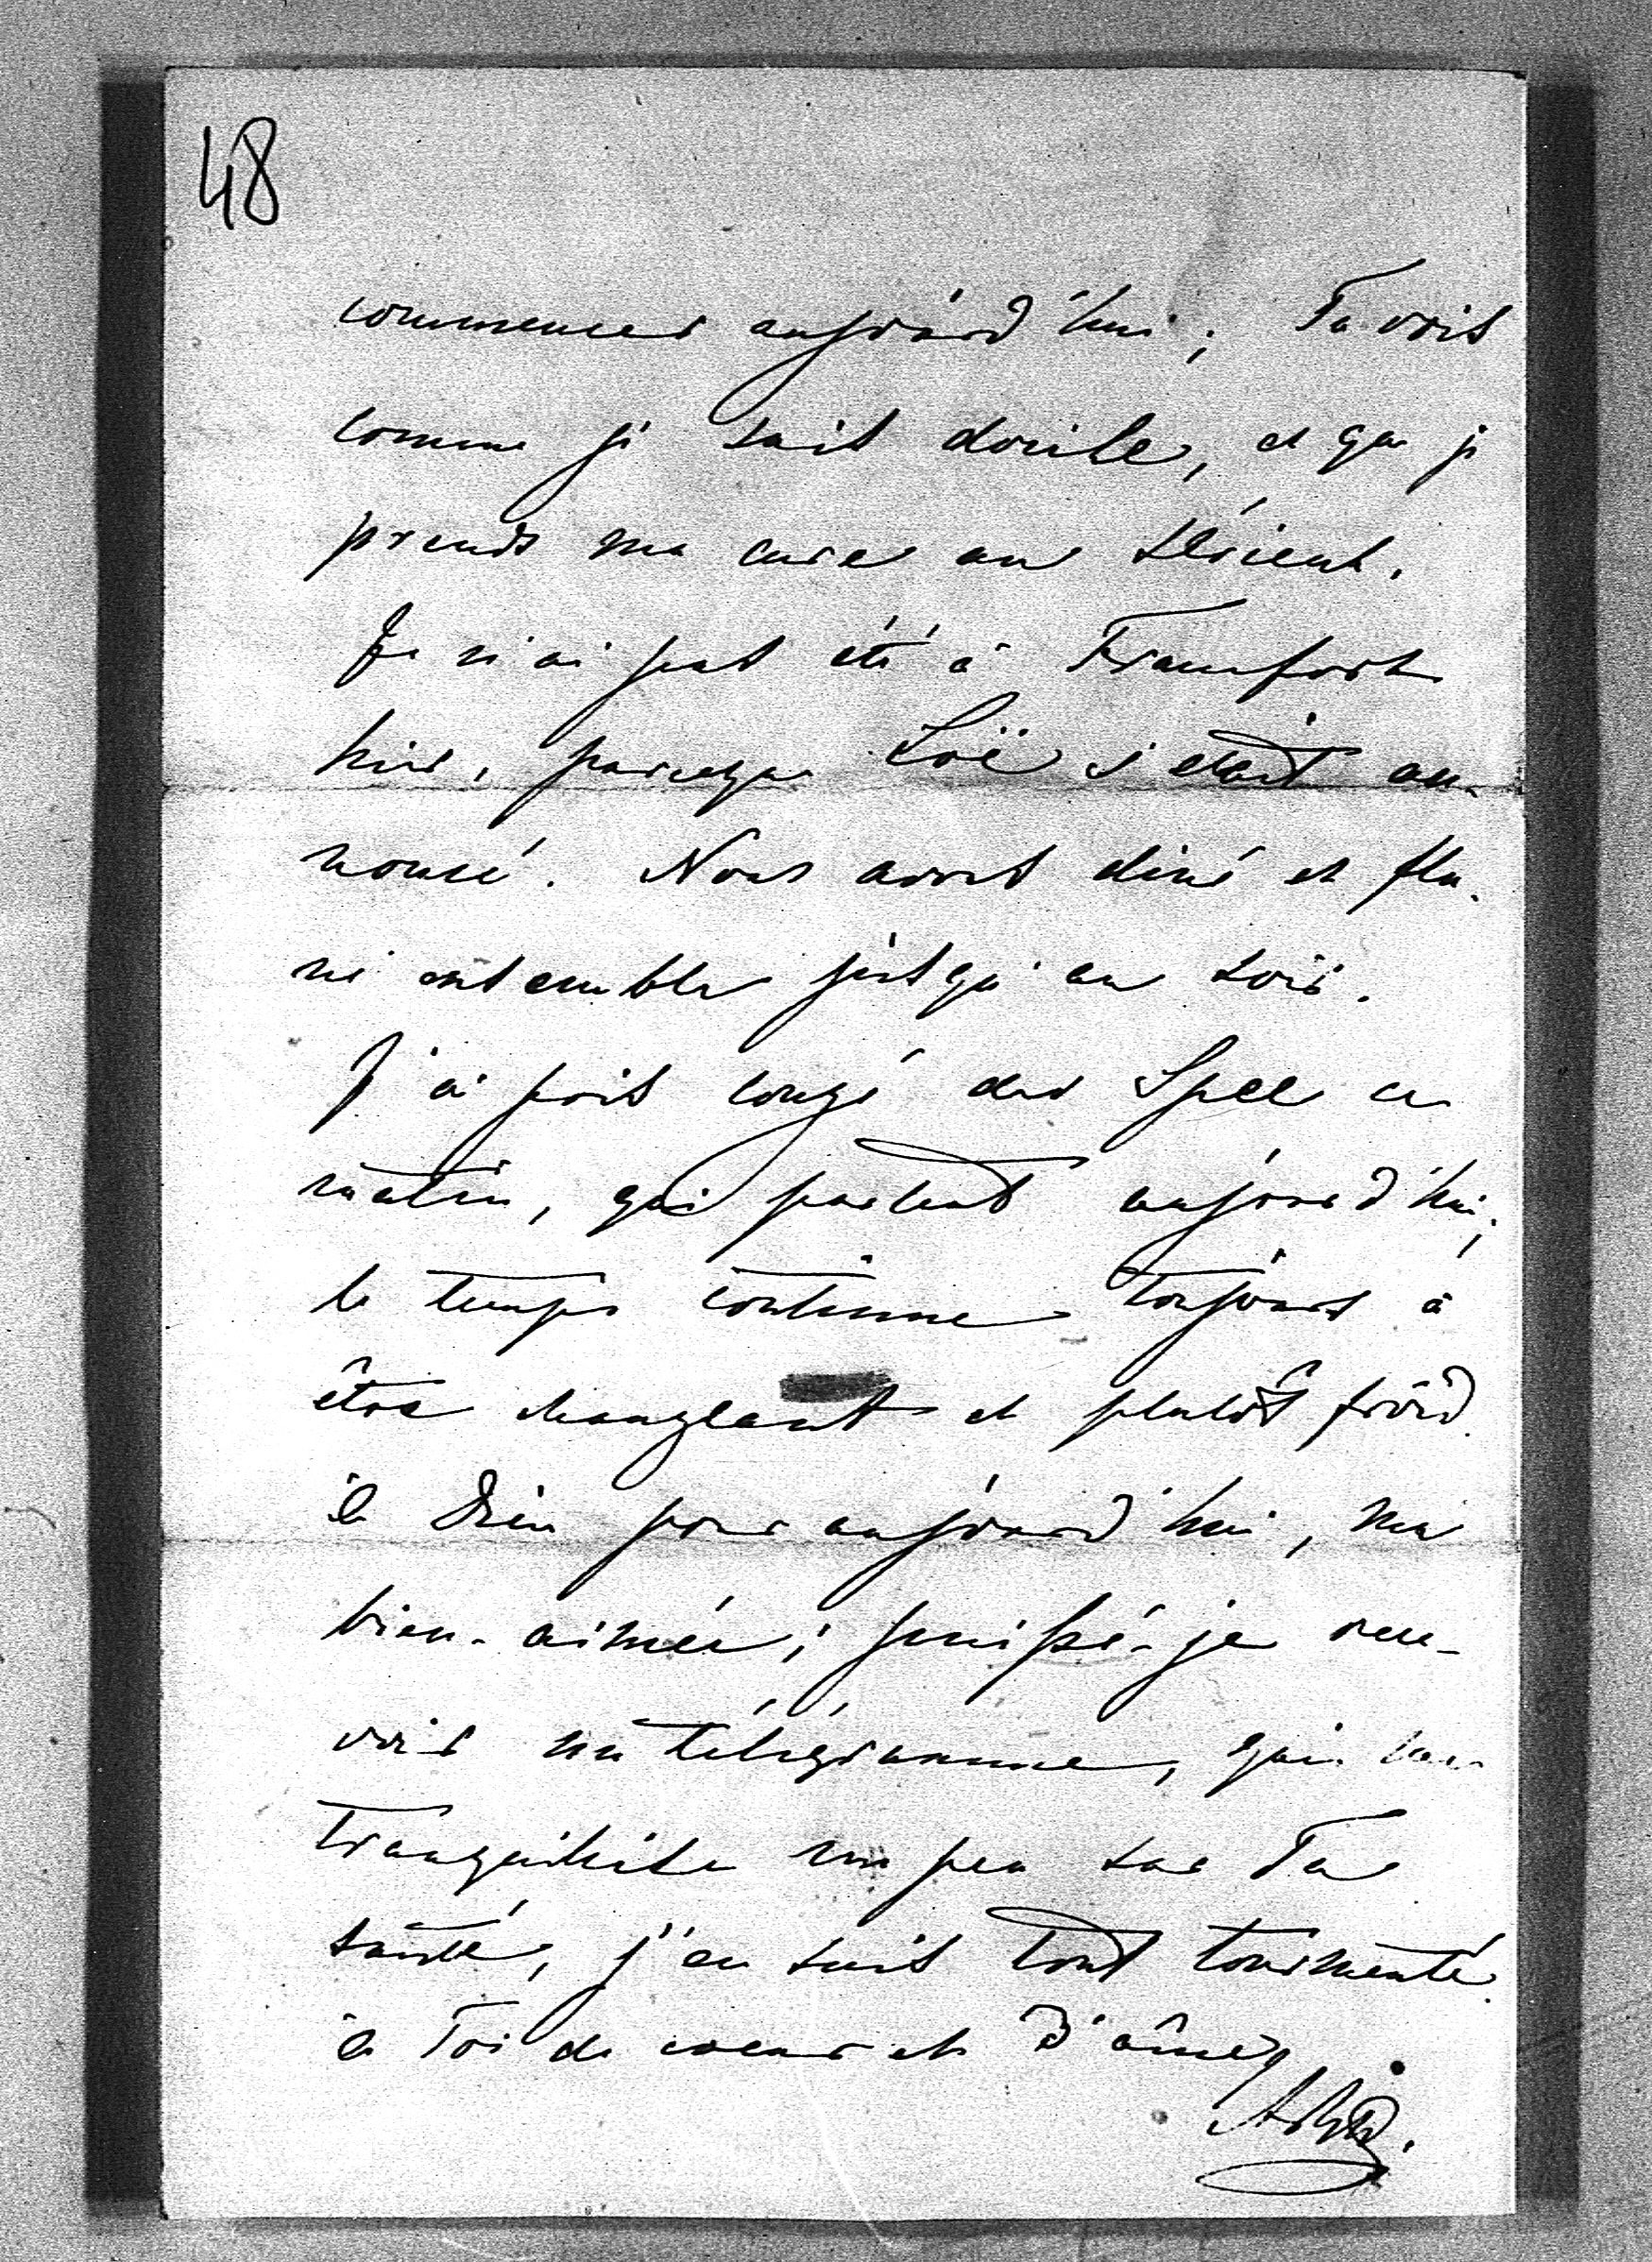 48
commencer aujourd'hui; Tu vois
comme je suis docile, et que je
prends ma cure au sérieux.
Je n'ai pas été à Francfort
hier, parceque Loë s'était an-
noncé. Nous avons diné et fla-
né ensemble jusqu'au soir.
J'ai pris congé des Spee ce
matin, qui partent aujourd'hui;
le temps continue toujours à
être changeant et plutôt froid.
à Dieu pour aujourd'hui, ma
bien-aimée; puissé-je rece-
voir un télégramme, qui me
tranquilise un peu sur Ta
santé, j'en suis tout tourmenté.
à Toi de coeur et d'âme